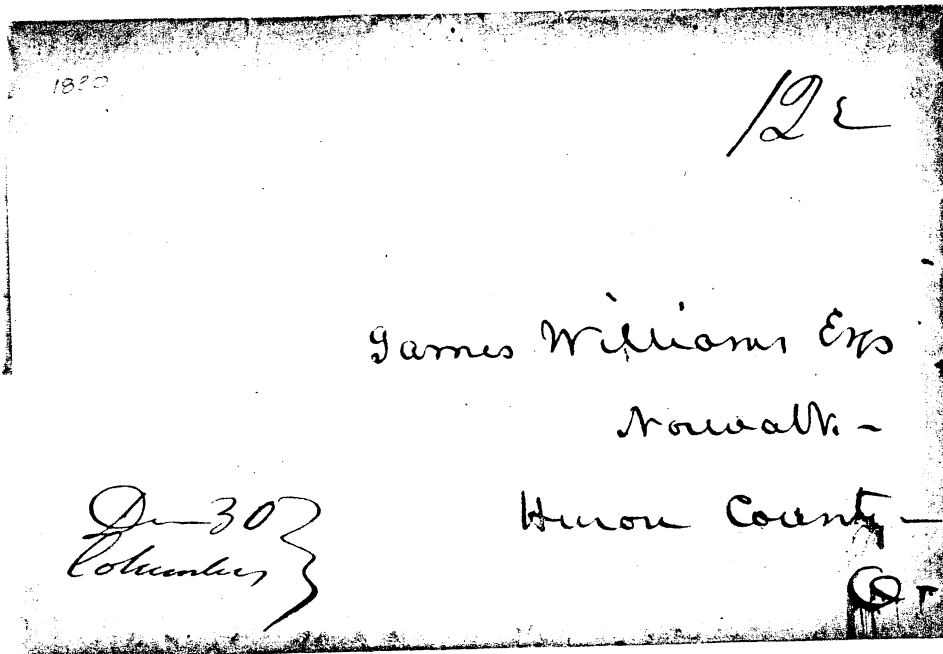 1830
12
James Williams Esq
Norwalk -
Huron County -
O -
30
Columbus